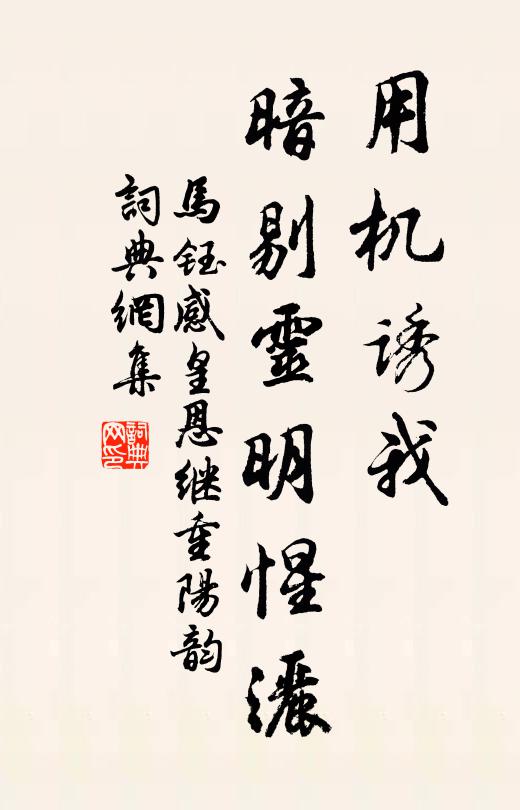 用机诱我
暗剔靈明惺灑
馬鈺感皇恩继重陽韵
詞典網集
詞典网印